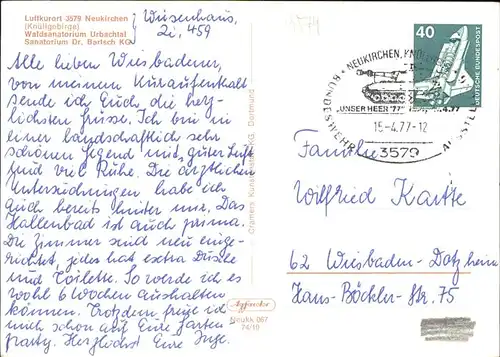 Luftkurort 3579 Neukirchen
(Knüllgebirge)
Waldsanatorium Urbachtal
Sanatorium Dr. Bartsch KG
Wiesenhaus,
Zi, 459
Alle lieben Wiesbadener,
von meinem Kuraufenthalt
sende ich Euch die herz-
lichsten Grüsse. Ich bin in
einer landschaftlich sehr
schönen Gegend mit guter Luft
und viel Ruhe. Die ärztlichen
Untersuchungen habe ich
auch bereits hinter mir. Das
Hallenbad ist auch prima.
Die Zimmer sind neu einge-
richtet, jedes hat extra Dusche
und Toilette. So werde ich es
wohl 6 Wochen aushalten
können. Trotzdem freue ich
mich schon auf Eure Garten-
party. Herzlichst Eure Inge.
Cramers Kunstanstalt KG, Dortmund
Neukk 067
74/10
40
DEUTSCHE BUNDESPOST
NEUKIRCHEN, KNÜLLGEB
"UNSER HEER '77" 4.77
BUNDESWEHR AUSSTELL
15-4.77-12
3579
Familie
Wilfried Kartte
62 Wiesbaden-Dotzheim
Hans-Böckler-Str. 75